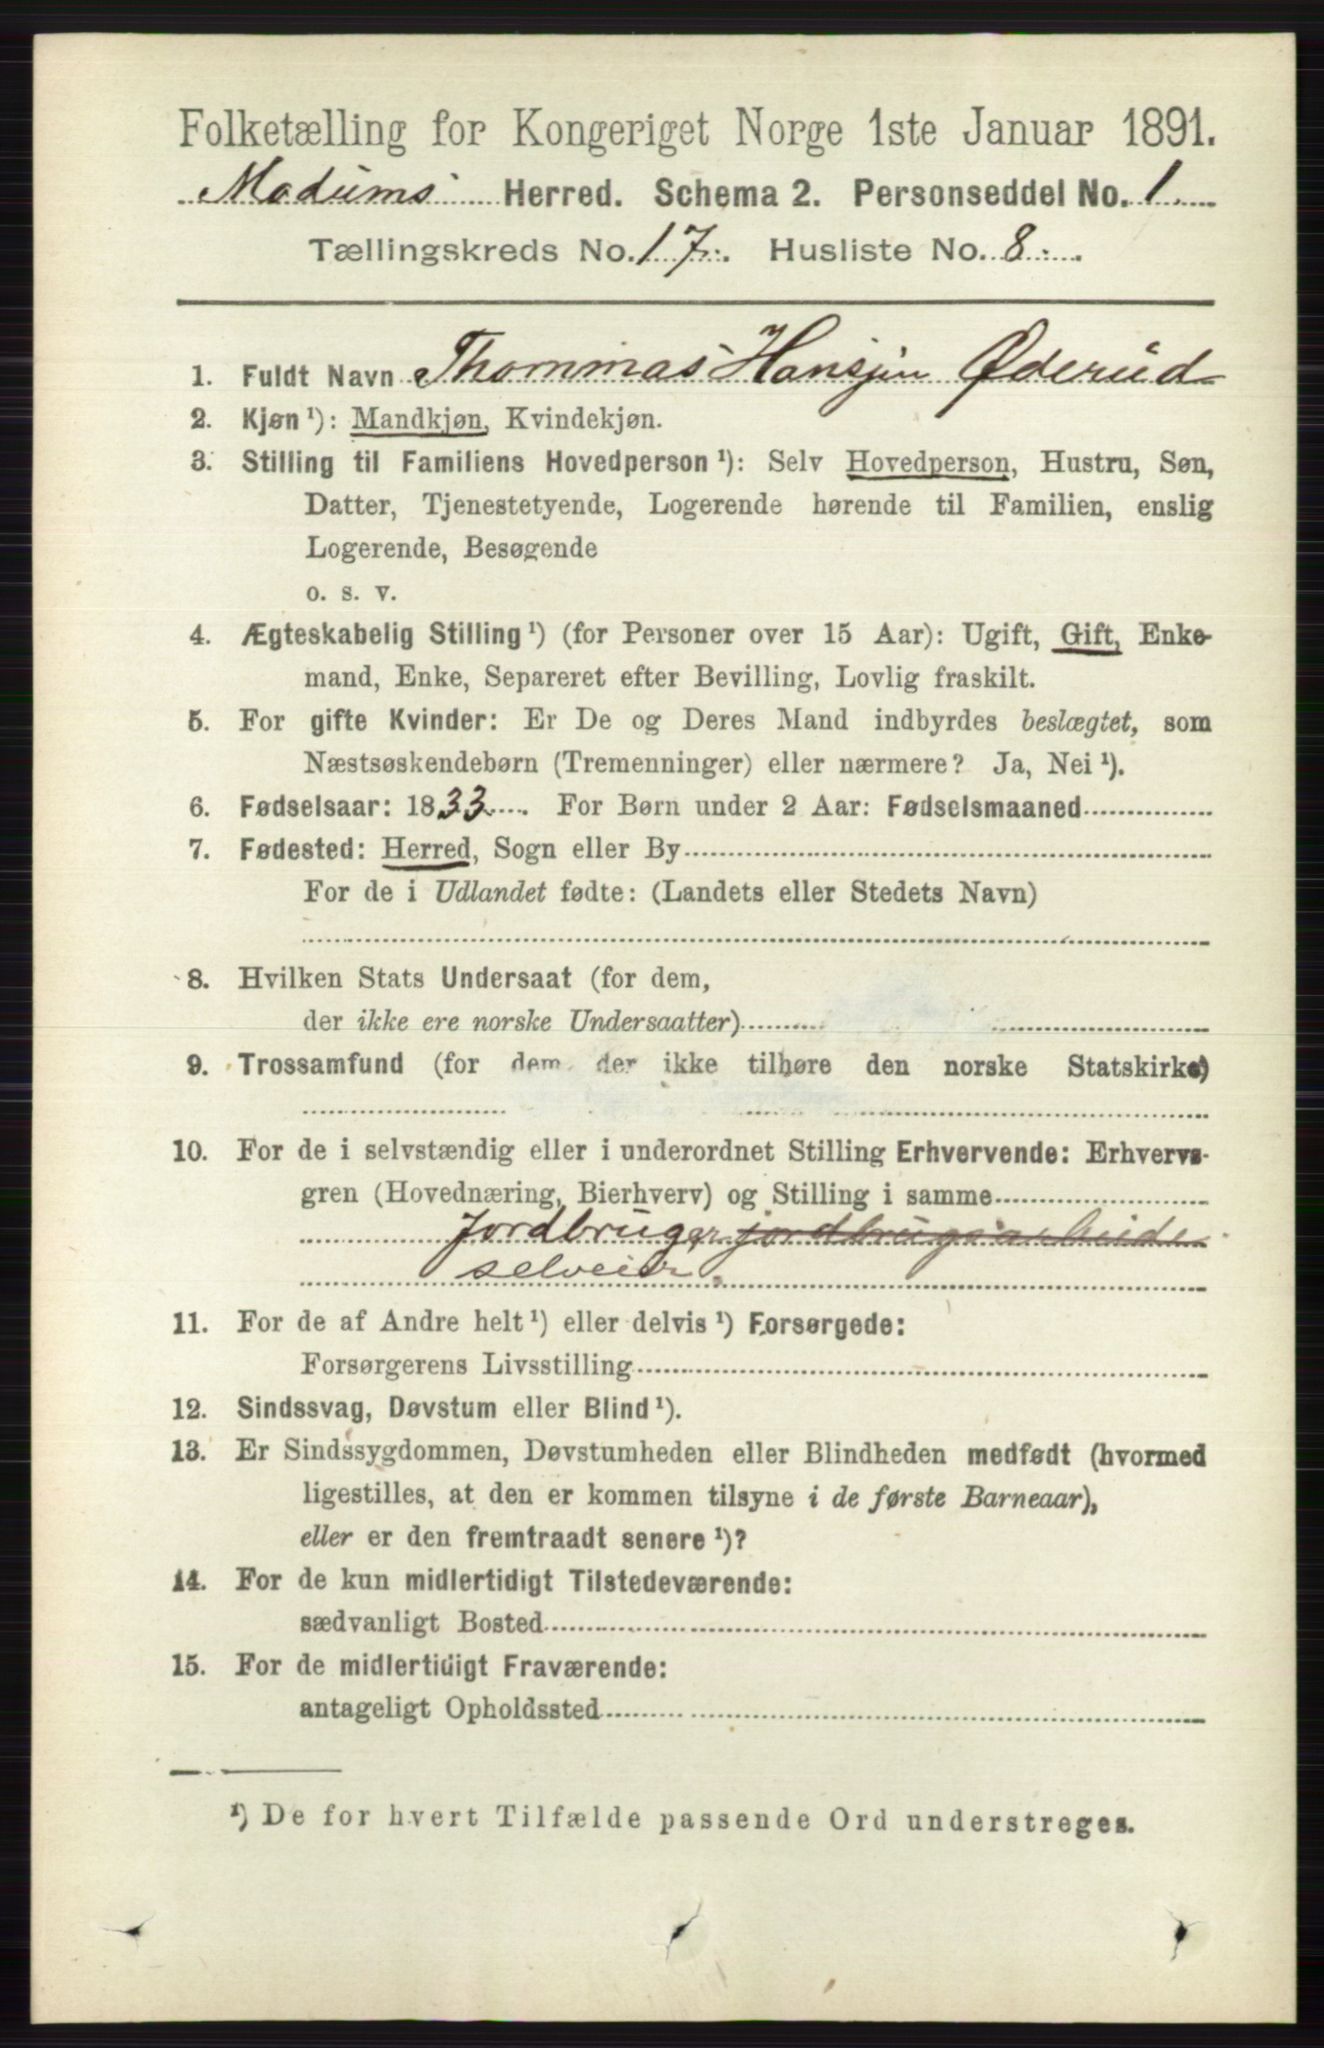 Folketælling for Kongeriget Norge 1ste Januar 1891.
Modums Herred. Schema 2. Personseddel No. 1
Tællingskreds No. 17. Husliste No. 8.
1. Fuldt Navn Thommas Hansjen Øderud
2. Kjøn ¹): Mandkjøn, Kvindekjøn.
3. Stilling til Familiens Hovedperson ¹): Selv Hovedperson, Hustru, Søn,
Datter, Tjenestetyende, Logerende hørende til Familien, enslig
Logerende, Besøgende
o. s. v.
4. Ægteskabelig Stilling ¹) (for Personer over 15 Aar): Ugift, Gift, Enke-
mand, Enke, Separeret efter Bevilling, Lovlig fraskilt.
5. For gifte Kvinder: Er De og Deres Mand indbyrdes beslægtet, som
Næstsøskendebørn (Tremenninger) eller nærmere? Ja, Nei ¹).
6. Fødselsaar: 1833. For Børn under 2 Aar: Fødselsmaaned
7. Fødested: Herred, Sogn eller By
For de i Udlandet fødte: (Landets eller Stedets Navn)
8. Hvilken Stats Undersaat (for dem,
der ikke ere norske Undersaatter)
9. Trossamfund (for dem, der ikke tilhøre den norske Statskirke)
10. For de i selvstændig eller i underordnet Stilling Erhvervende: Erhvervs-
gren (Hovednæring, Bierhverv) og Stilling i samme
Jordbruger jordbrugsarbeide
selveier.
11. For de af Andre helt ¹) eller delvis ¹) Forsørgede:
Forsørgerens Livsstilling
12. Sindssvag, Døvstum eller Blind ¹).
13. Er Sindssygdommen, Døvstumheden eller Blindheden medfødt (hvormed
ligestilles, at den er kommen tilsyne i de første Barneaar),
eller er den fremtraadt senere ¹)?
14. For de kun midlertidigt Tilstedeværende:
sædvanligt Bosted
15. For de midlertidigt Fraværende:
antageligt Opholdssted
¹) De for hvert Tilfælde passende Ord understreges.